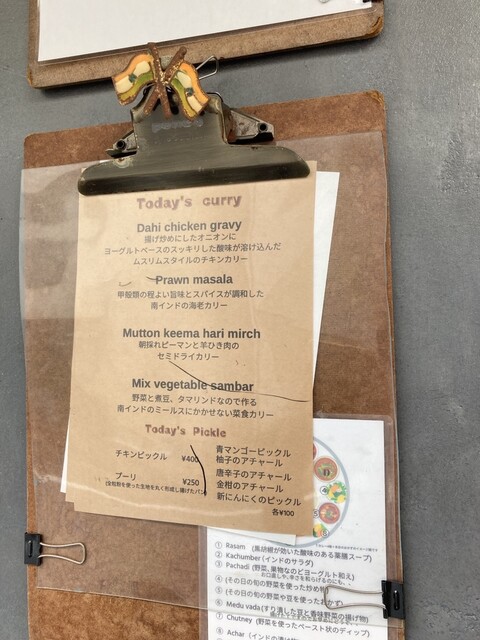 Today's curry
Dahi chicken gravy
揚げ炒めにしたオニオンに
ヨーグルトベースのスッキリした酸味が溶け込んだ
ムスリムスタイルのチキンカリー
Prawn masala
甲殻類の程よい旨味とスパイスが調和した
南インドの海老カリー
Mutton keema hari mirch
朝採れピーマンと羊ひき肉の
セミドライカリー
Mix vegetable sambar
野菜と煮豆、タマリンドなので作る
南インドのミールスにかかせない菜食カリー
Today's Pickle
チキンピックル ¥400
プーリ ¥250
(全粒粉を使った生地を丸く形成し揚げたパン)
青マンゴーピックル
柚子のアチャール
唐辛子のアチャール
金柑のアチャール
新にんにくのピックル
各¥100
① Rasam (黒胡椒が効いた酸味のある薬膳スープ)
② Kachumber (インドのサラダ)
③ Pachadi (野菜、果物などのヨーグルト和え)
お口直しや、辛さを和らげるのにも。
④ (その日の旬の野菜を使った炒め
⑤ (その日の旬の野菜や豆を使ったおかず)
⑥ Medu vada (すり潰した豆と香味野菜の揚げ物)
⑦ Chutney (野菜を使ったペースト状のディップ)
⑧ Achar (インドの漬け